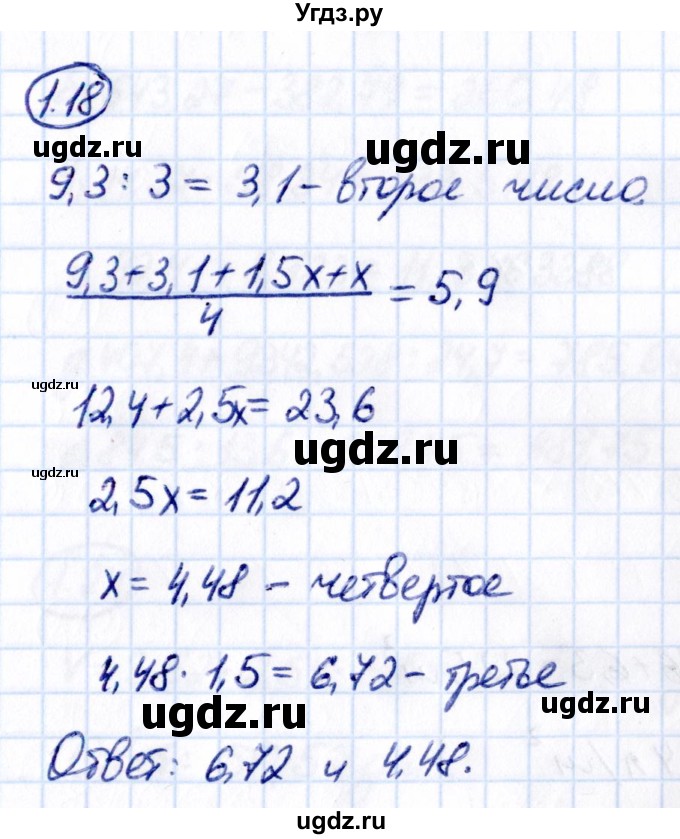 Угдз.ру
1.18
ugdz.ru
ugdz.ru
9,3 : 3 = 3,1 - второе число.
ugdz.ru
9,3+3,1+1,5x+x
4
= 5,9
ugdz.ru
12,4+2,5x = 23,6
ugdz.ru
ugdz.ru
2,5x = 11,2
x = 4,48 - четвертое
ugdz.ru
4,48 · 1,5 = 6,72 - третье
ugdz.ru
ugdz.ru
Ответ: 6,72 и 4,48.
ugdz.ru
ugdz.ru